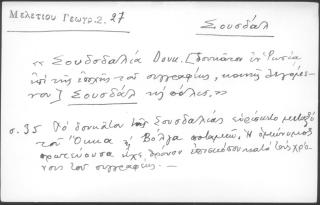 Μελετίου Γεωγρ. 2. 27
Σουσδάλ
« Σουδσδαλία Δουκ. [δουκᾶτον ἐν Ρωσία
ἐπὶ τῆς ἐποχῆς τοῦ συγγραφέως, κοινῆς λεγόμε-
νον] Σουσδάλ τῆς πόλεως »
σ. 35 Τὸ δουκᾶτον τῆς Σουσδαλίας εὑρίσκετο μεταξὺ
τοῦ Ὄκκα ἢ Βόλγα ποταμῶν, Ἡ ὁμώνυμος
πρωτεύουσα εἶχε θρόνον ἐπισκόπου κατὰ τοὺς χρό-
νους τοῦ συγγραφέως. —